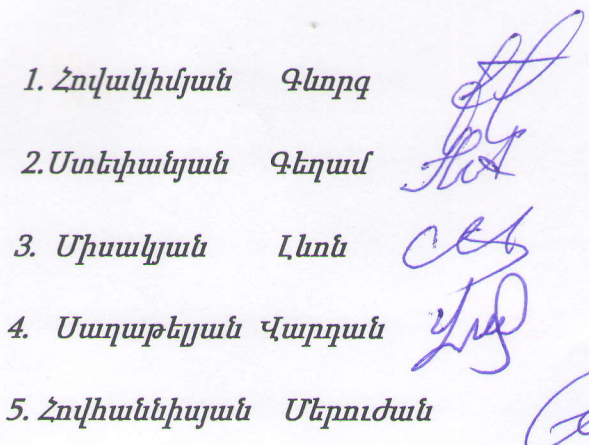 1. Հովակիմյան Գևորգ
2. Ստեփանյան Գեղամ
3. Միսակյան Լևոն
4. Սաղաթելյան Վարդան
5. Հովհաննիսյան Մերուժան